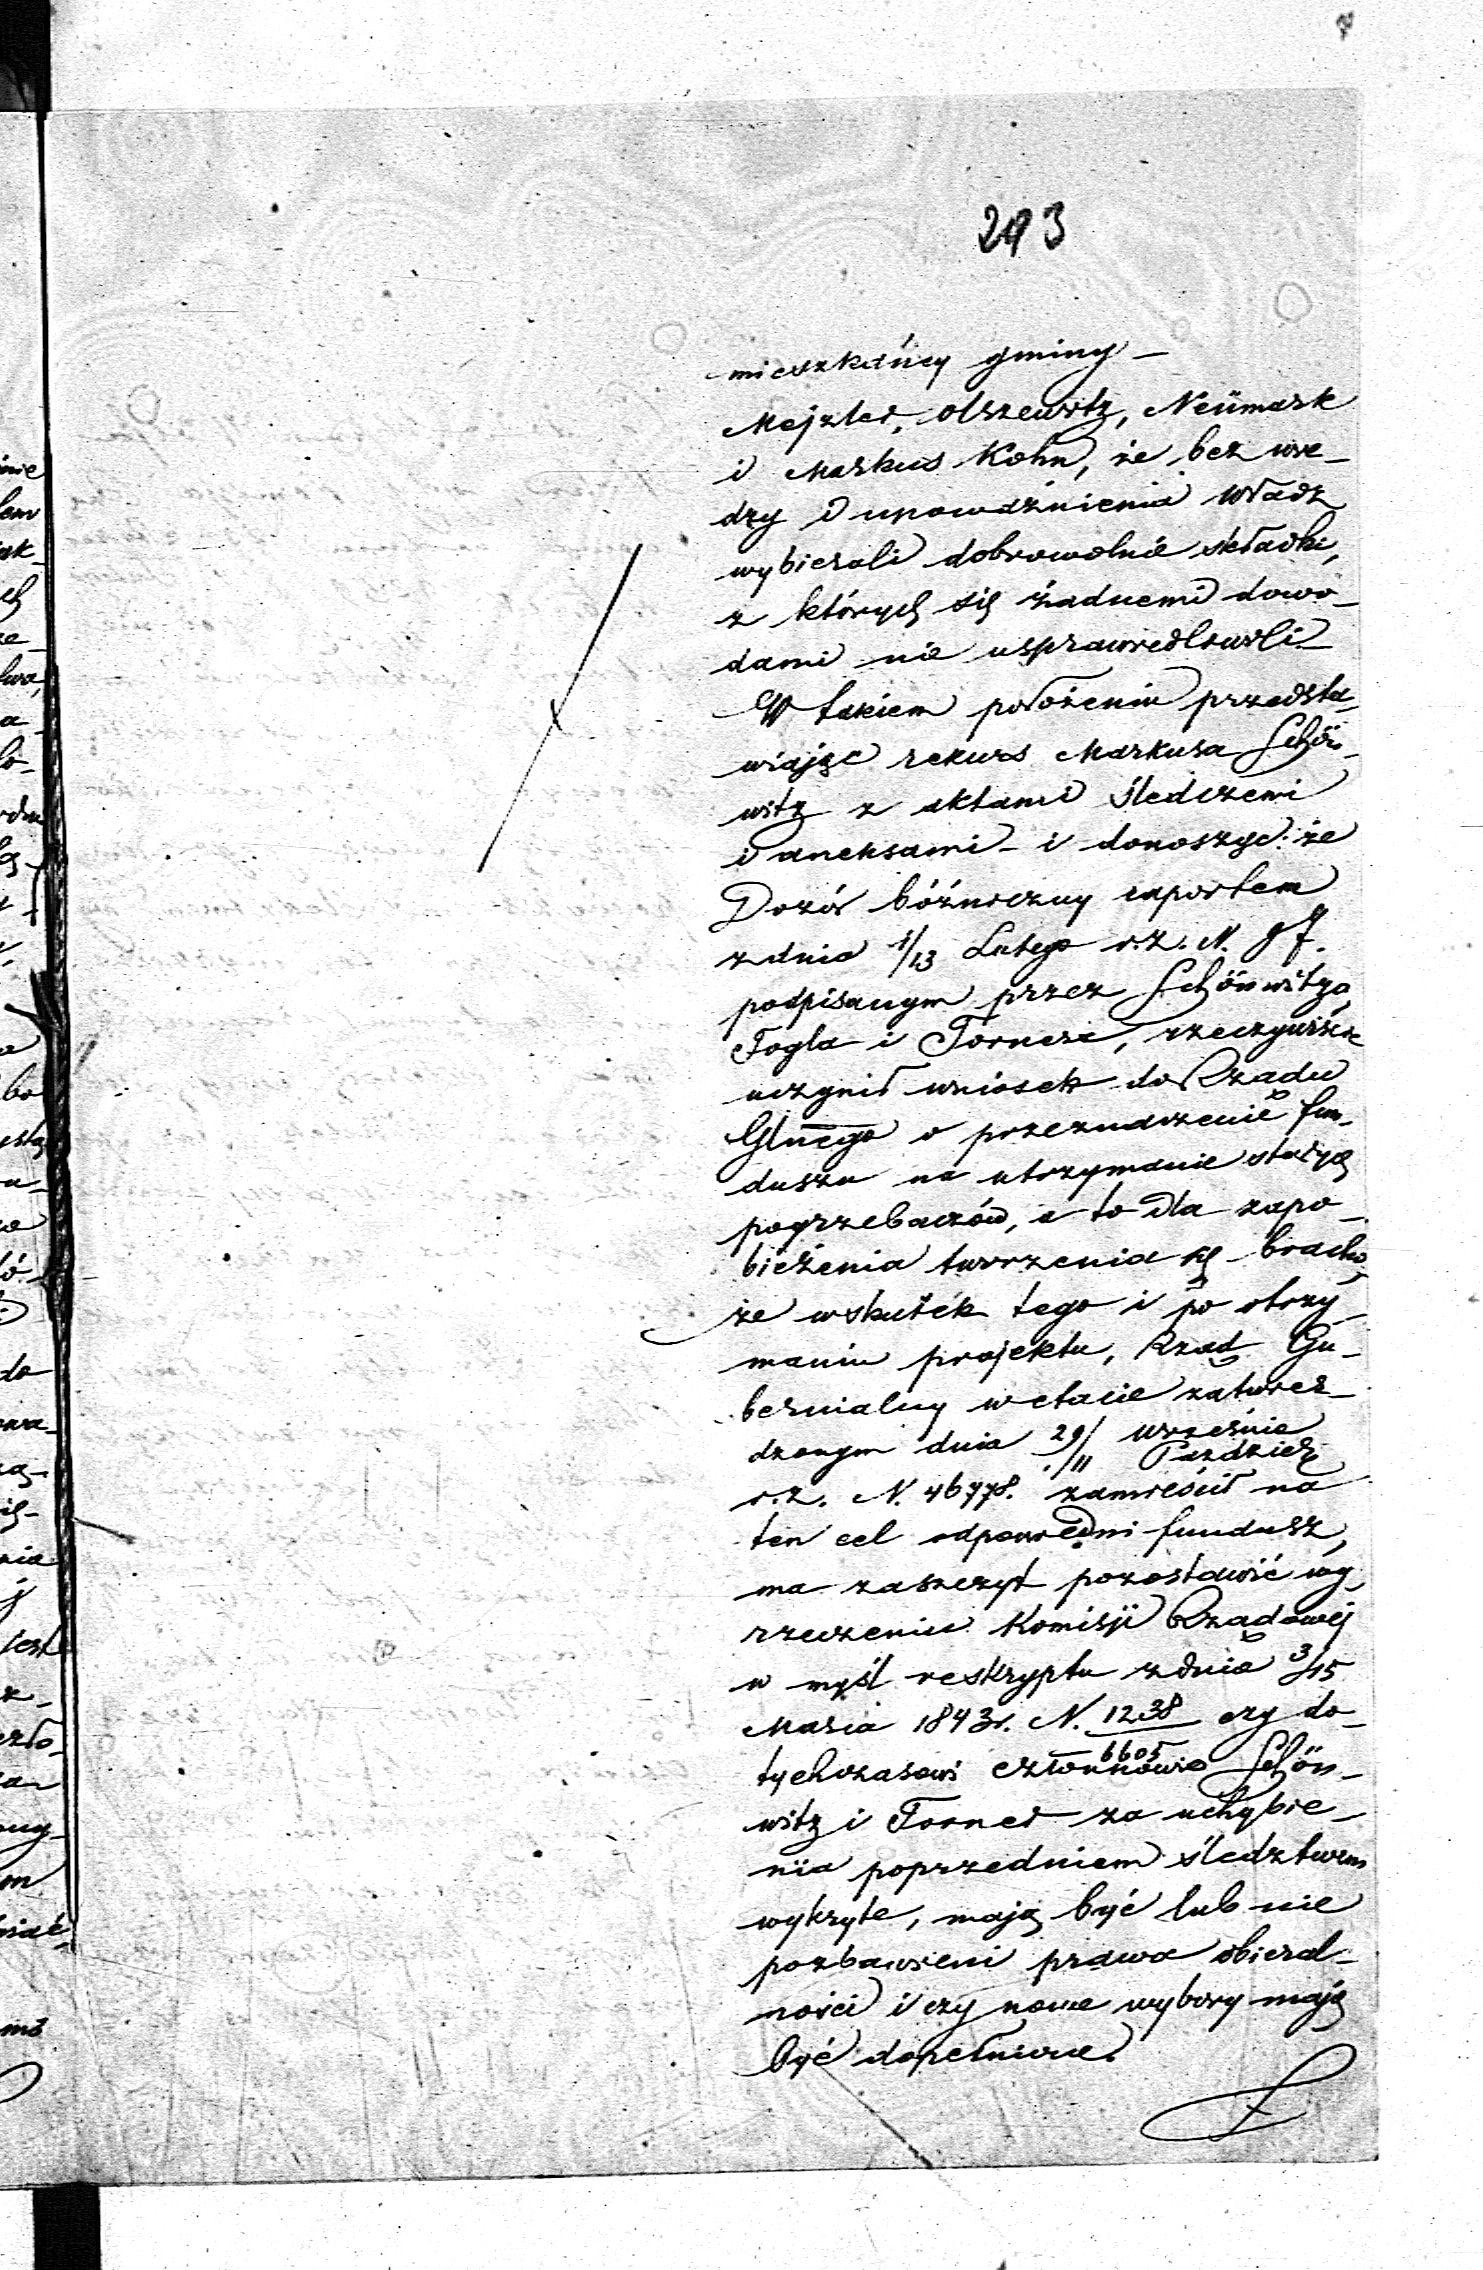 203
mieszkańcy gminy –
Mejzler, Olszewitz, Neümark
i Markus Kohn, że bez wie-
dzy i upoważnienia Władz
wybierali dobrowolnie składki,
z których się żadnemi dowo-
dami nie usprawiedliwili –
W takiem położeniu przedsta-
wiając rekurs Markusa Schön-
witz z aktami śledczemi
i aneksami – i donosząc: że
Dozór bóżniczny raportem
z dnia 1/13 Lutego r.z. N.
podpisanym przez Schönwitza,
Fogla i Tornera, rzeczywiście
uczynił wniosek do Rządu
Glnego o przeznaczenie fun-
duszu na utrzymanie starych
pogrzebaczów, a to dla zapo-
bieżenia tworzenia się bractw,
że wskutek tego i po otrzy-
maniu projektu, Rząd Gu-
bernialny w etacie zatwier-
dzonym dnia 29/11 Września Paździer.
r.z. N. 46778. zamieścił na
ten cel odpowiedni fundusz,
ma zaszczyt pozostawić wy-
rzeczeniu Komisji Rządowej
w myśl reskryptu z dnia 3/15
Marca 1843 r. N. 1238/6605 czy do-
tychczasowi członkowie Schön-
witz i Torner za uchybie-
nia poprzedniem śledztwem
wykryte, mają być lub nie
pozbawieni prawa obieral-
ności i czy nowe wybory mają
być dopełnione.